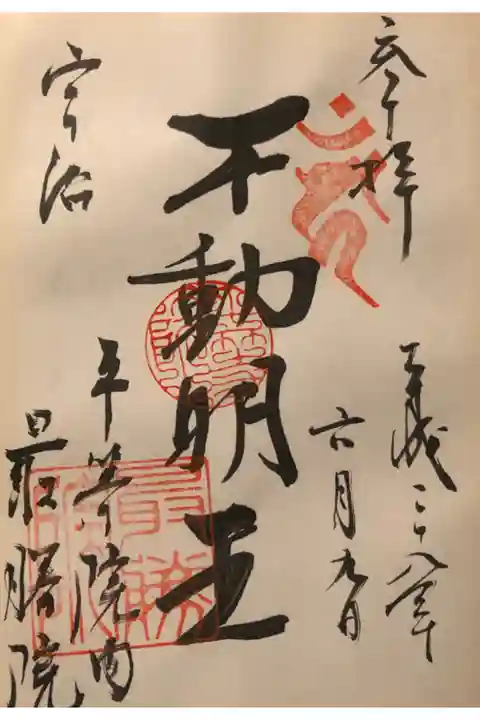 奉拝
平成二十八年
六月九日
不動明王
宇治
平等院内
最勝院